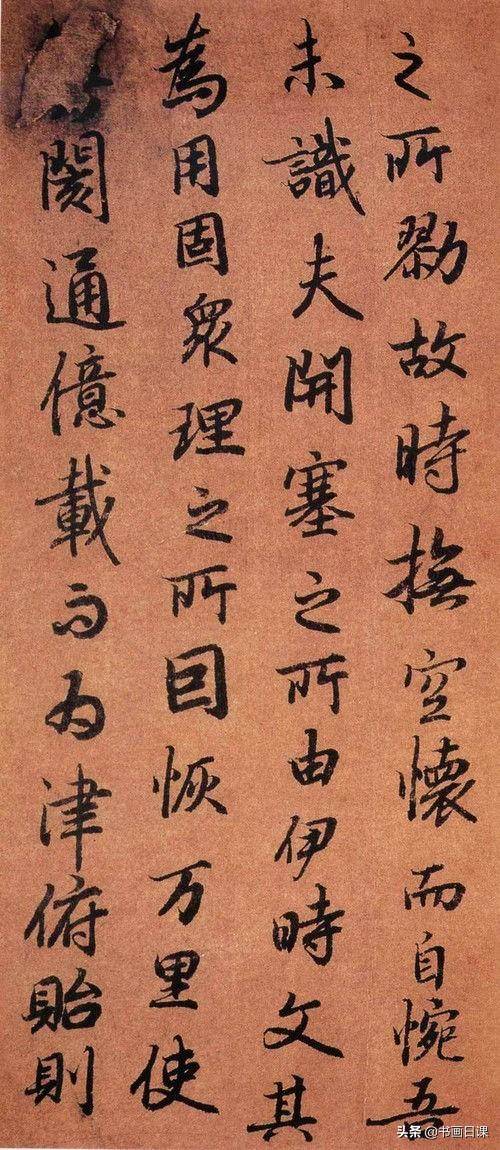 之所勠故時撫空懷而自惋吾
未識夫開塞之所由伊時文其
為用固衆理之所因恢万里使
閡通億載而为津俯貽則
头条 @书画日课